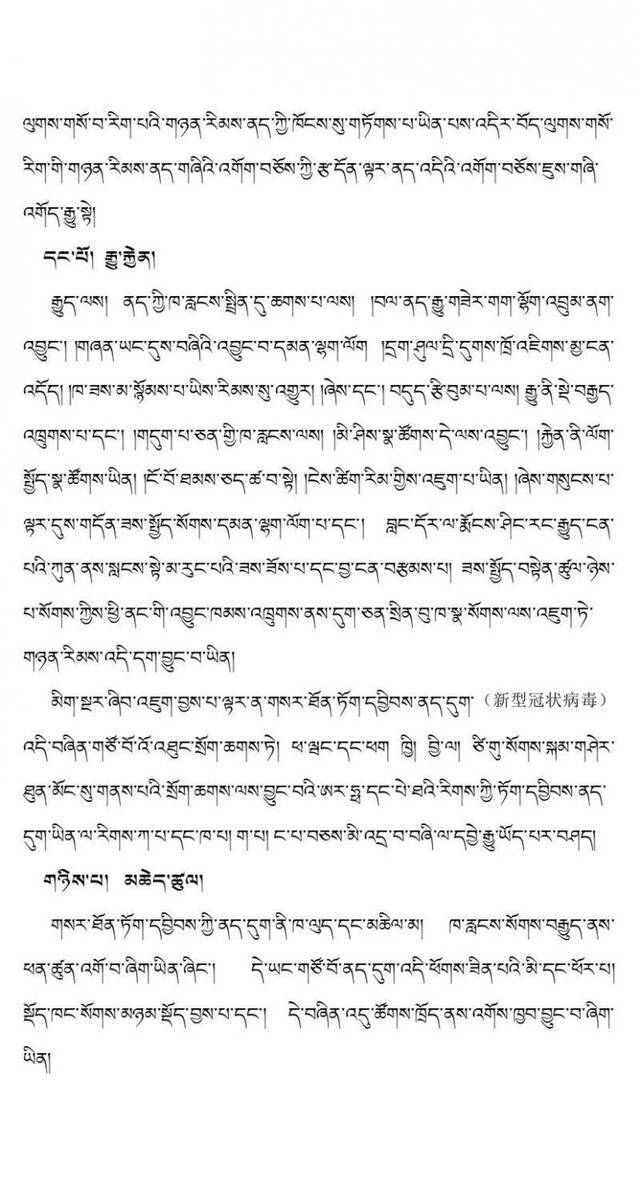 ལུགས་གསོ་བ་རིག་པའི་གཉན་རིམས་ནད་ཀྱི་ཁོངས་སུ་གཏོགས་པ་ཡིན་པས་འདིར་བོད་ལུགས་གསོ་
རིག་གི་གཉན་རིམས་ནད་གཞིའི་འགོག་བཅོས་ཀྱི་རྩ་དོན་ལྟར་ནད་འདིའི་འགོག་བཅོས་ཇུས་གཞི་
འགོད་རྒྱུ་སྟེ།
དང་པོ། རྒྱུ་རྐྱེན།
རྒྱུད་ལས། ནད་ཀྱི་ཁ་རླངས་སྤྲིན་དུ་ཆགས་པ་ལས། །བལ་ནད་རྒྱུ་གཟེར་གག་ལྷོག་འབྲུམ་ནག་
འབྱུང་། །གཞན་ཡང་དུས་བཞིའི་འབྱུང་བ་དམན་ལྷག་ལོག །དྲག་ཤུལ་དྲི་དུགས་ཁྲོ་འཇིགས་མྱ་ངན་
འདོད། །ཁ་ཟས་མ་སྙོམས་པ་ཡིས་རིམས་སུ་འགྱུར། །ཞེས་དང་། བདུད་རྩི་བུམ་པ་ལས། རྒྱུ་ནི་སྡེ་བརྒྱད་
འཁྲུགས་པ་དང་། །གདུག་པ་ཅན་གྱི་ཁ་རླངས་ལས། །མི་ཤིས་སྣ་ཚོགས་དེ་ལས་འབྱུང་། །རྐྱེན་ནི་ལོག་
སྤྱོད་སྣ་ཚོགས་ཡིན། །ངོ་བོ་ཐམས་ཅད་ཚ་བ་སྟེ། །ངེས་ཚིག་རིམ་གྱིས་འཇུག་པ་ཡིན། །ཞེས་གསུངས་པ་
ལྟར་དུས་གདོན་ཟས་སྤྱོད་སོགས་དམན་ལྷག་ལོག་པ་དང་། བླང་དོར་ལ་རྨོངས་ཤིང་རང་རྒྱུད་ངན་
པའི་ཀུན་ནས་སླངས་སྟེ་མ་རུང་པའི་ཟས་ཟོས་པ་དང་བྱ་ངན་བརྩམས་པ། ཟས་སྤྱོད་བསྟེན་ཚུལ་ཉེས་
པ་སོགས་ཀྱིས་ཕྱི་ནང་གི་འབྱུང་ཁམས་འཁྲུགས་ནས་དུག་ཅན་སྲིན་བུ་ཁ་སྣ་སོགས་ལས་འཇུག་ཏེ་
གཉན་རིམས་འདི་དག་བྱུང་བ་ཡིན།
མིག་སྔར་ཞིབ་འཇུག་བྱས་པ་ལྟར་ན་གསར་ཐོན་ཏོག་དབྱིབས་ནད་དུག་（新型冠状病毒）
འདི་བཞིན་གཙོ་བོ་འོ་འཐུང་སྲོག་ཆགས་ཏེ། ཕ་ལྦང་དང་ཕག ཁྱི། བྱི་ལ། ཙི་གུ་སོགས་སྐམ་གཤེར་
ཐུན་མོང་སུ་གནས་པའི་སྲོག་ཆགས་ལས་བྱུང་བའི་ཨར་དང་པེ་ཐའི་རིགས་ཀྱི་ཏོག་དབྱིབས་ནད་
དུག་ཡིན་ལ་རིགས་ཀ་པ་དང་ཁ་པ། ག་པ། ང་པ་བཅས་མི་འདྲ་བ་བཞི་ལ་དབྱེ་རྒྱུ་ཡོད་པར་བཤད།
གཉིས་པ། མཆེད་ཚུལ།
གསར་ཐོན་ཏོག་དབྱིབས་ཀྱི་ནད་དུག་ནི་ཁ་ལུད་དང་མཆིལ་མ། ཁ་རླངས་སོགས་བརྒྱུད་ནས་
ཕན་ཚུན་འགོ་བ་ཞིག་ཡིན་ཞིང་། དེ་ཡང་གཙོ་བོ་ནད་དུག་འདི་ཕོགས་ཟིན་པའི་མི་དང་ཕོར་པ།
སྡོད་ཁང་སོགས་མཉམ་སྡོད་བྱས་པ་དང་། དེ་བཞིན་འདུ་ཚོགས་ཁྲོད་ནས་འགོས་ཁྱབ་བྱུང་བ་ཞིག་
ཡིན།